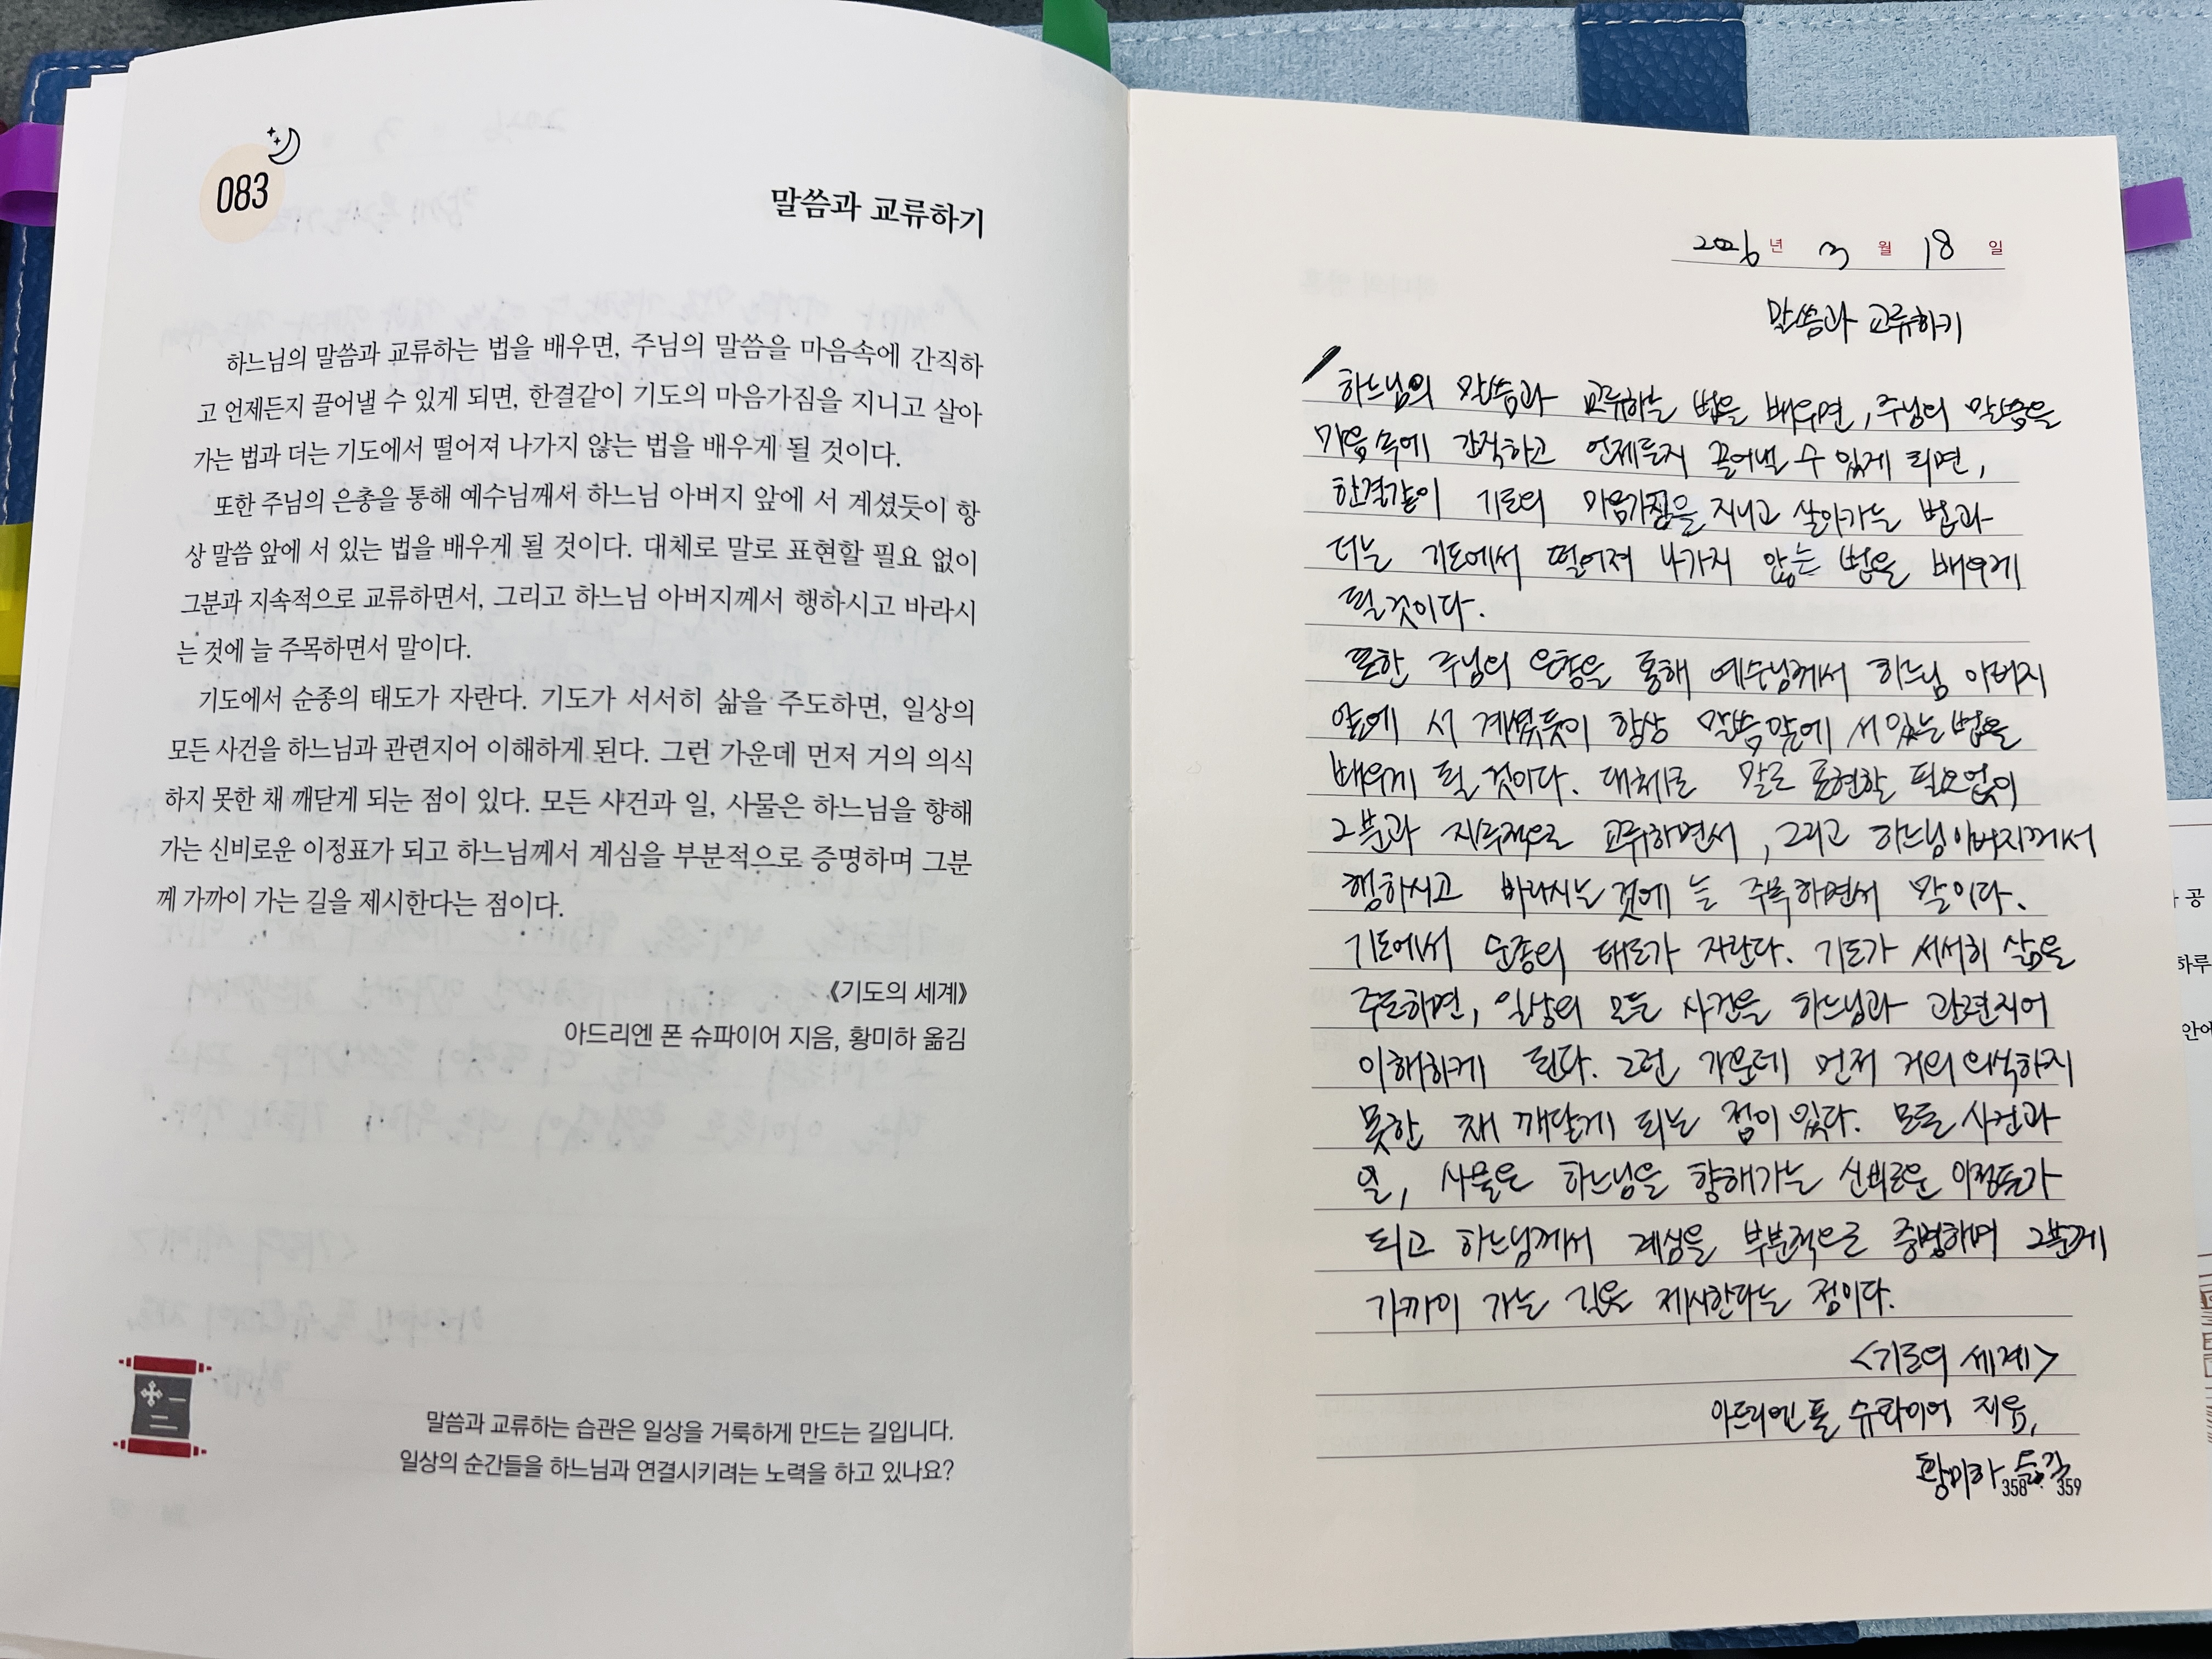 083
말씀과 교류하기
하느님의 말씀과 교류하는 법을 배우면, 주님의 말씀을 마음속에 간직하
고 언제든지 끌어낼 수 있게 되면, 한결같이 기도의 마음가짐을 지니고 살아
가는 법과 더는 기도에서 떨어져 나가지 않는 법을 배우게 될 것이다.
또한 주님의 은총을 통해 예수님께서 하느님 아버지 앞에 서 계셨듯이 항
상 말씀 앞에 서 있는 법을 배우게 될 것이다. 대체로 말로 표현할 필요 없이
그분과 지속적으로 교류하면서, 그리고 하느님 아버지께서 행하시고 바라시
는 것에 늘 주목하면서 말이다.
기도에서 순종의 태도가 자란다. 기도가 서서히 삶을 주도하면, 일상의
모든 사건을 하느님과 관련지어 이해하게 된다. 그런 가운데 먼저 거의 의식
하지 못한 채 깨닫게 되눈 점이 있다. 모든 사건과 일, 사물은 하느님을 향해
가는 신비로운 이정표가 되고 하느님께서 계심을 부분적으로 증명하며 그분
께 가까이 가는 길을 제시한다는 점이다.
《기도의 세계》
아드리엔 폰 슈파이어 지음, 황미하 옮김
말씀과 교류하는 습관은 일상을 거룩하게 만드는 길입니다.
일상의 순간들을 하느님과 연결시키려는 노력을 하고 있나요?
2026년 3월 18일
말씀과 교류하기
하느님의 말씀과 교류하는 법을 배우면, 주님의 말씀을
마음속에 간직하고 언제든지 끌어낼 수 있게 되면,
한결같이 기도의 마음가짐을 지니고 살아가는 법과
더는 기도에서 떨어져 나가지 않는 법을 배우게
될 것이다.
또한 주님의 은총을 통해 예수님께서 하느님 아버지
앞에 서 계셨듯이 항상 말씀 앞에 서 있는 법을
배우게 될 것이다. 대체로 말로 표현할 필요없이
그분과 지속적으로 교류하면서, 그리고 하느님 아버지께서
행하시고 바라시는 것에 늘 주목하면서 말이다.
기도에서 순종의 태도가 자란다. 기도가 서서히 삶을
주도하면, 일상의 모든 사건을 하느님과 관련지어
이해하게 된다. 그런 가운데 먼저 거의 의식하지
못한 채 깨닫게 되는 점이 있다. 모든 사건과
일, 사물은 하느님을 향해가는 신비로운 이정표가
되고 하느님께서 계심을 부분적으로 증명하며 그분께
가까이 가는 길을 제시한다는 점이다.
<기도의 세계>
아드리엔 폰 슈파이어 지음,
황미하 옮김
358 359
공
하루
안에